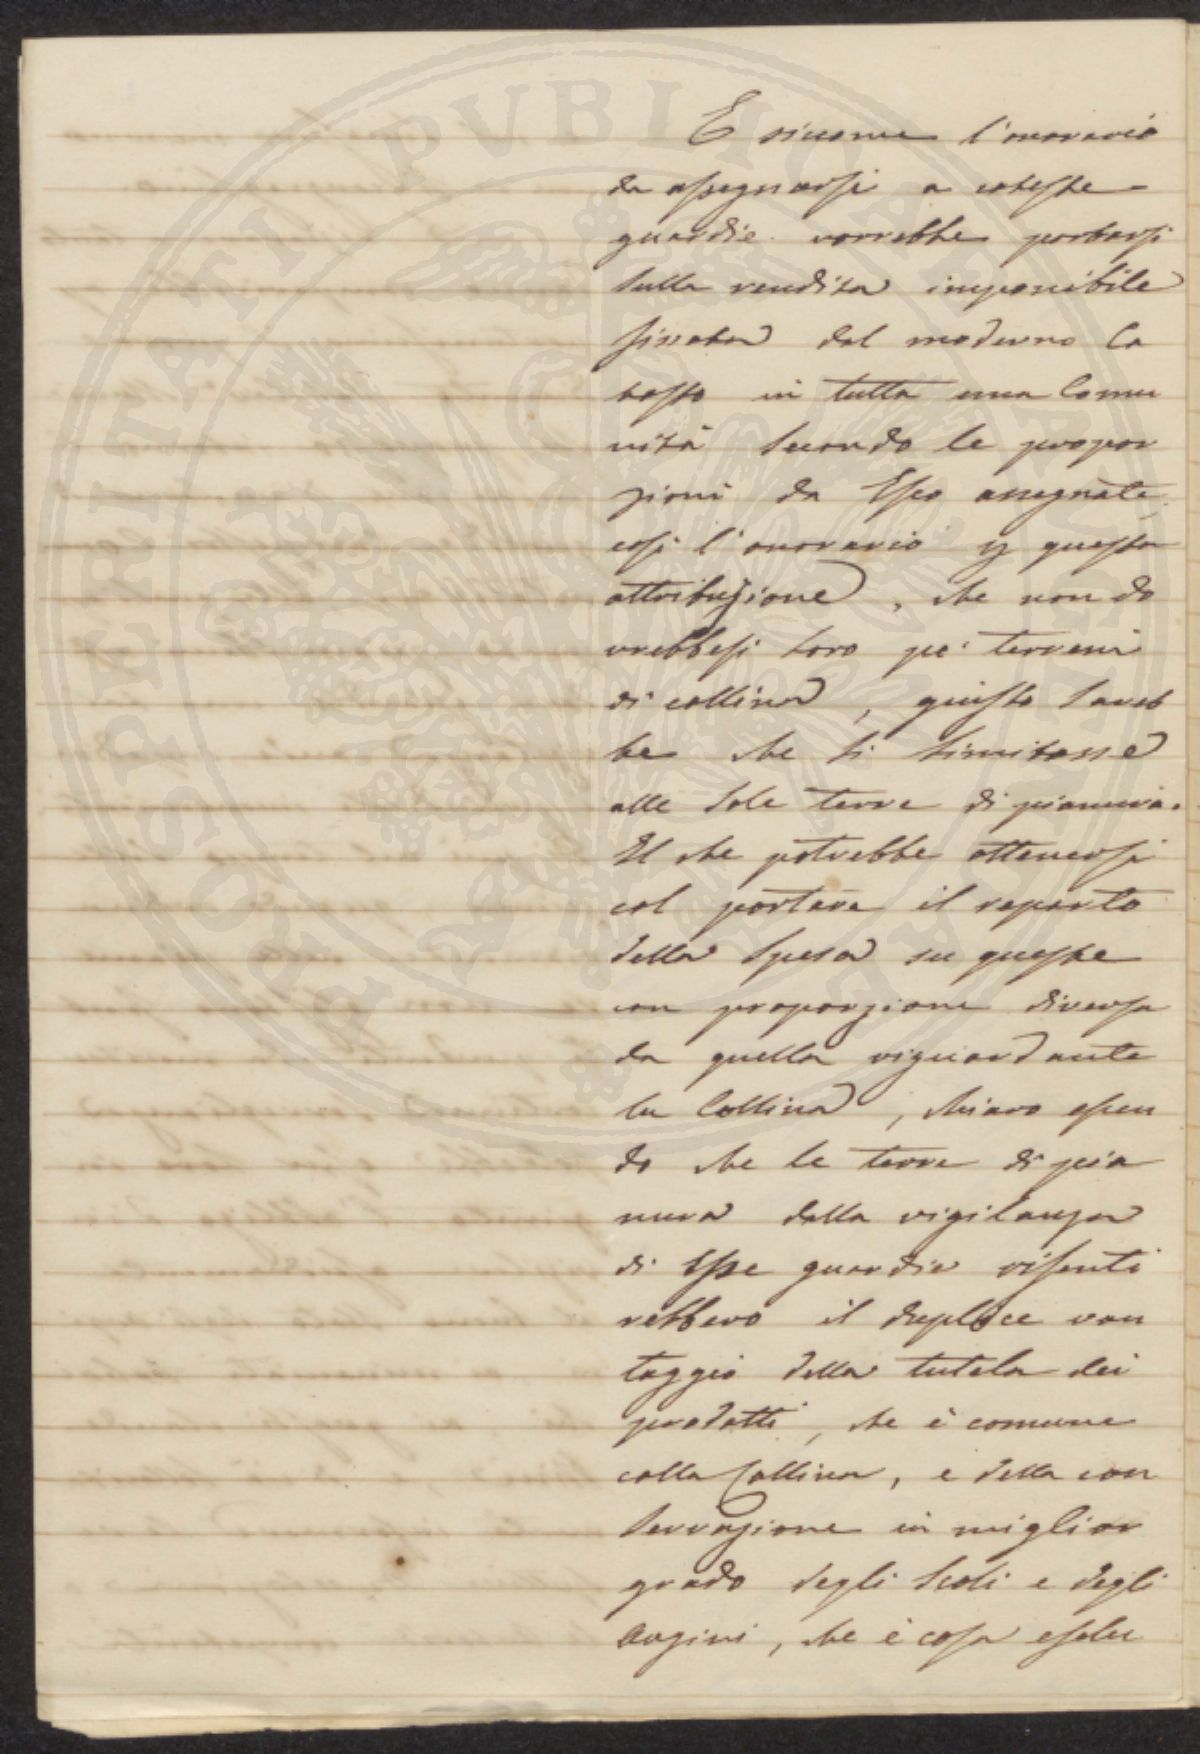 PROSPERITATI PVBLICAE AVGENDAE
E siccome l'onorario
da assegnarsi a coteste
guardie vorrebbe portarsi
sulla rendita imponibile
fissata dal moderno Ca
tasto in tutta una Comu
nità secondo le propor
zioni da Esso assegnate
così l'onorario p questa
attribuzione, che non do
vrebbesi loro pe' terreni
di collina, giusto sareb
be che si limitasse
alle sole terre di pianura.
Il che potrebbe ottenersi
col portare il reparto
della spesa su queste
con proporzione diversa
da quella riguardante
la Collina, chiaro essen
do che le terre di pia
nura dalla vigilanza
di Esse guardie risenti
rebbero il duplice van
taggio della tutela dei
prodotti, che è comune
colla Collina, e della con
servazione in miglior
grado degli scoli e degli
Argini, che è cosa esclu